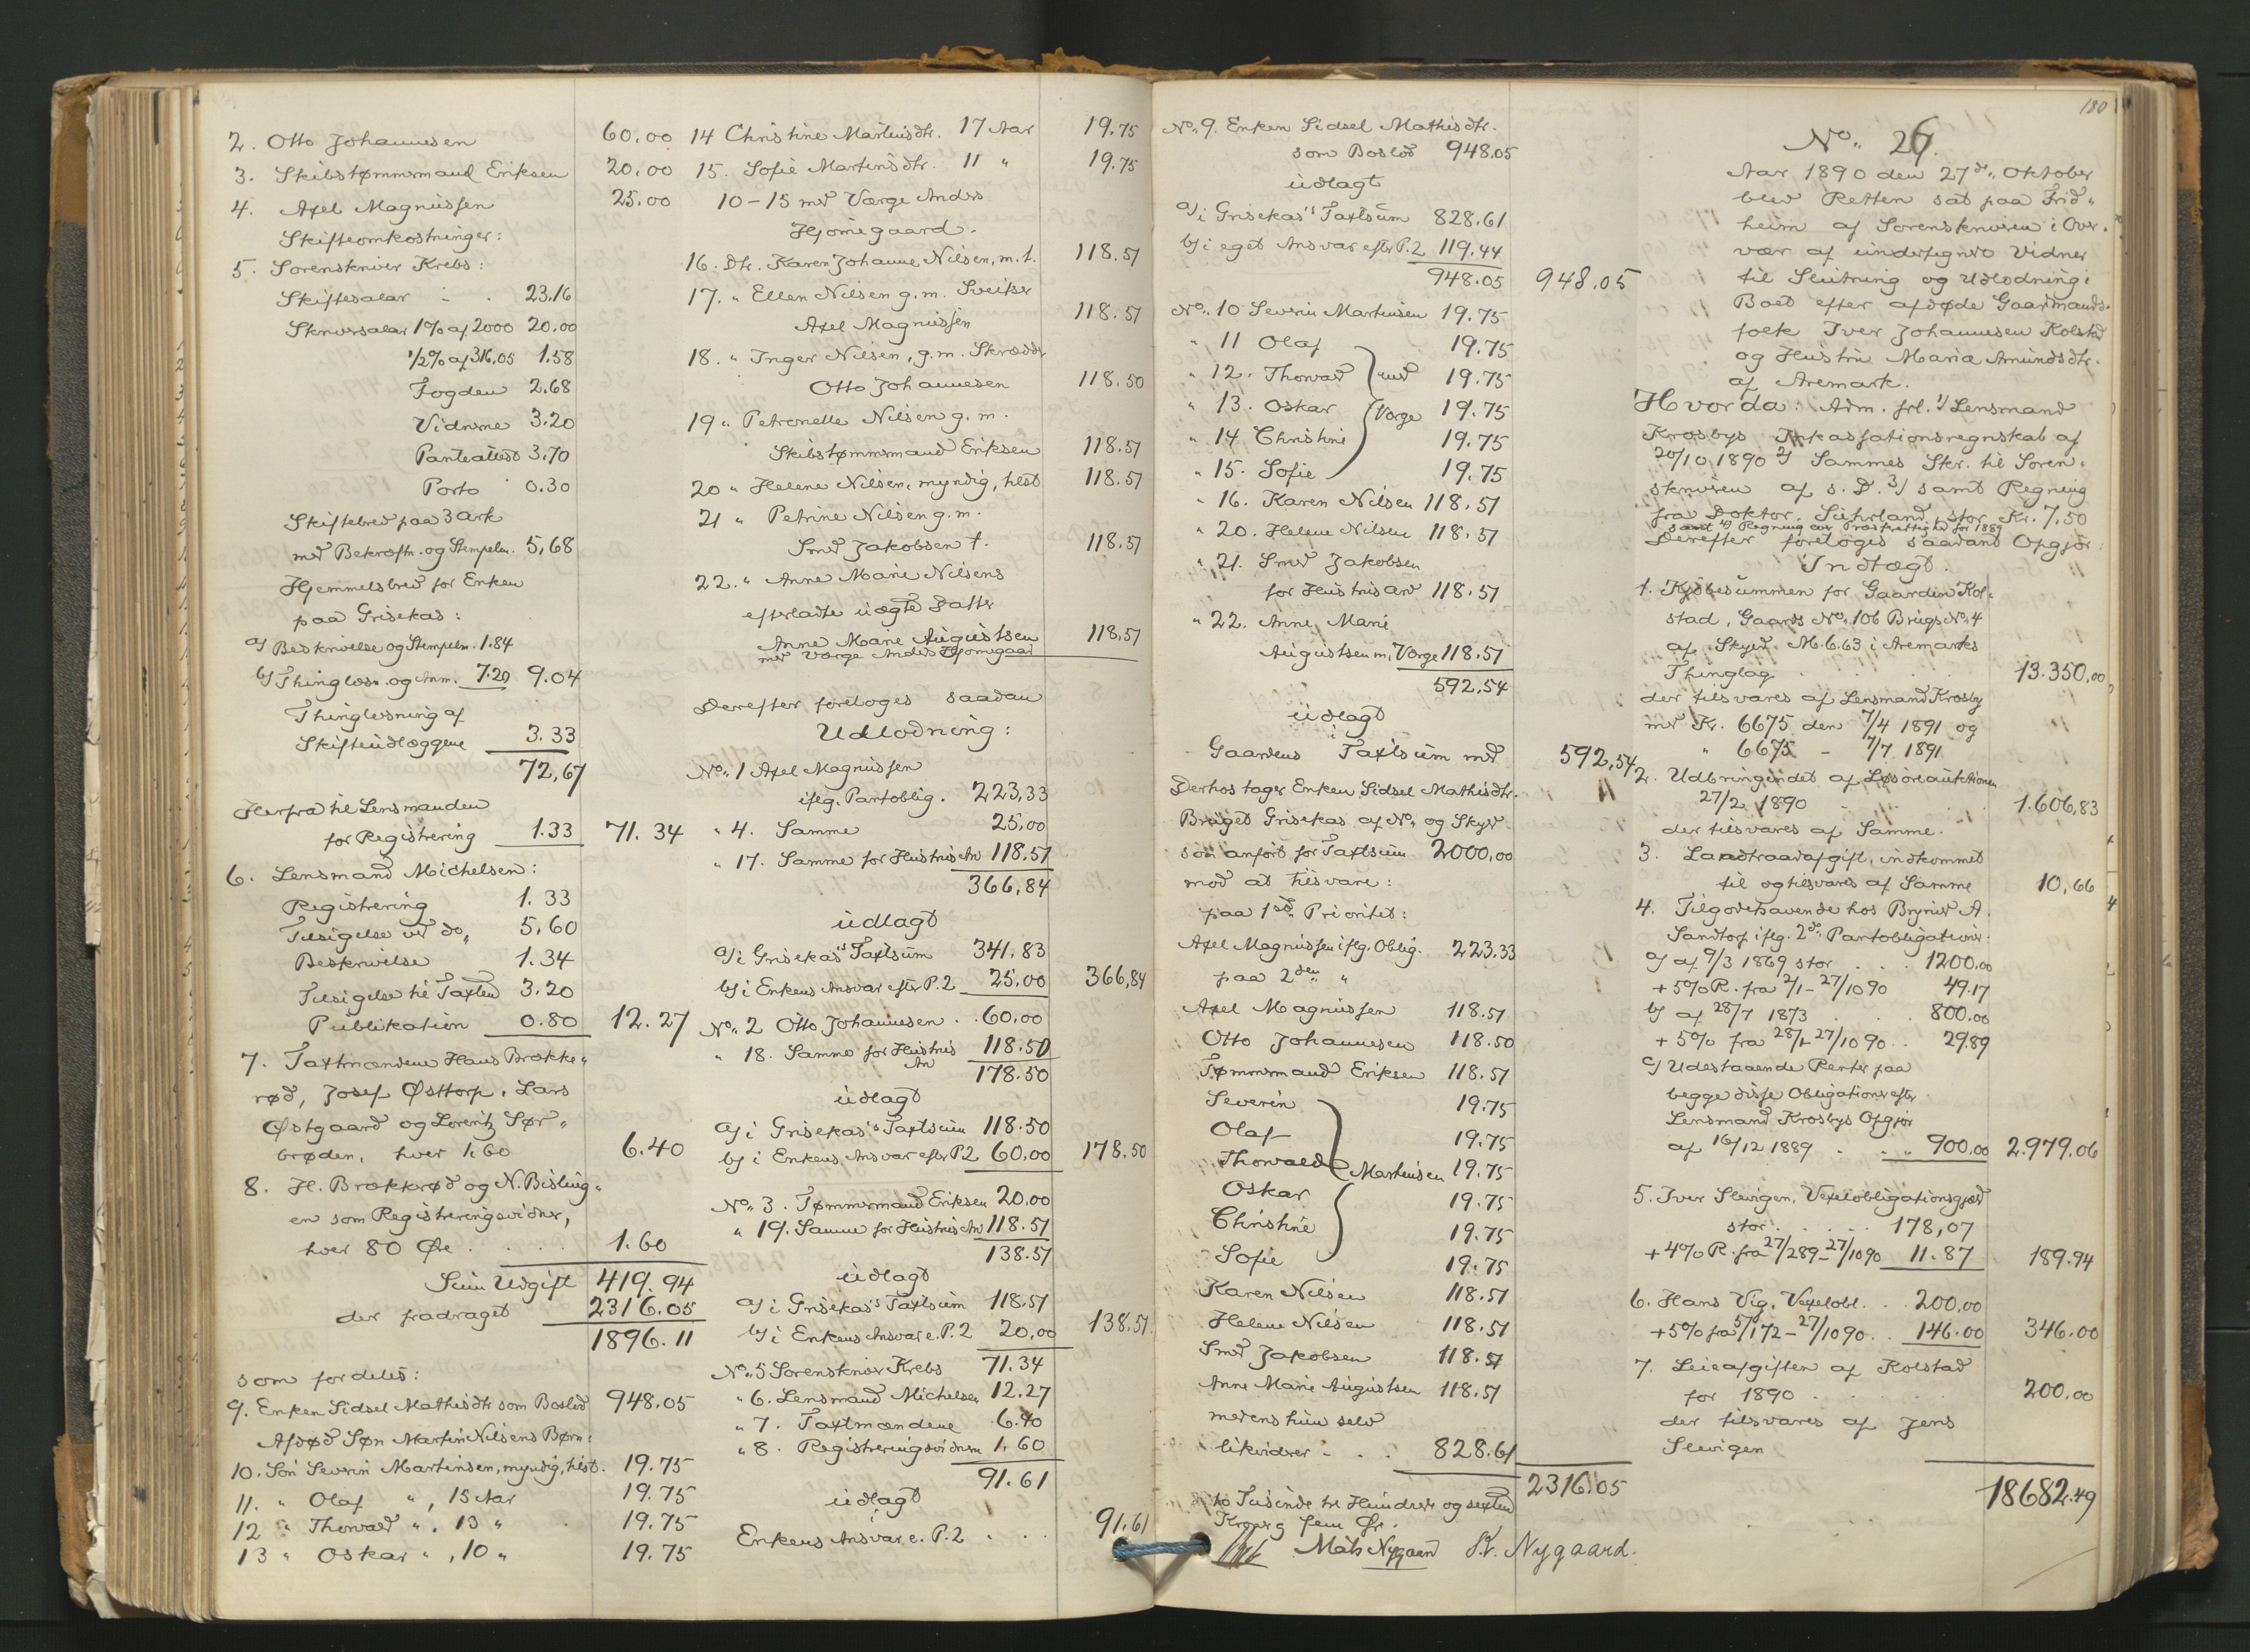 2. Otto Johannesen 60.00
3. Skibstømmermand Eriksen 20.00
4. Axel Magnussen 25.00
Skifteomkostninger:
5. Sorenskriver Krebs:
Skiftesalær - . 23.16
Skriversalær 1% af 2000 20.00
1/2% af 316,05 1.58
Fogden 2.68
Vidnerne 3.20
Panteattest 3.70
Porto 0.30
Skiftebrev paa 3 Ark
med Bekræftn. og Stempelm. 5,68
Hjemmelsbrev for Enken
paa Grisekas:
a) Beskrivelse og Stempelm. 1.84
b) Thinglæsn. og Anm. 7.20 9.04
Thinglæsning af
Skifteudlæggene 3.33
72,67
Herfra til Lensmanden
for Registrering 1.33 71.34
6. Lensmand Michelsen:
Registrering 1.33
Tilsigelse ved do. 5,60
Beskrivelse 1.34
Tilsigelse til Taxten 3.20
Publikation 0.80 12.27
7. Taxtmændene Hans Brække„
rød, Josef Østtorp, Lars
Østgaard og Lorentz Sør„
brøden, hver 1.60 6.40
8. H. Brækkerød og N. Bisling„
en som Registreringsvidner,
hver 80 Øre . . . . 1.60
Sum Udgift 419.94
der fradraget 2316.05
1896.11
som fordeles:
9. Enken Sidsel Mathisdtr som Boslod 948.05
Afdød Søn Martin Nilsens Børn:
10. Søn Severin Martinsen, myndig, tilst. 19.75
11. " Olaf " , 15 Aar 19.75
12 " Thorvald " , 13 " 19.75
13 " Oskar " , 10 " 19.75
14 Christine Martinsdtr. 17 Aar 19.75
15. Sofie Martinsdtr. 11 " 19.75
10-15 med Værge Anders
Hjørnegaard.
16. Dtr. Karen Johanne Nilsen, m. t. 118.51
17. " Ellen Nilsen g. m. Sveitser
Axel Magnussen 118.51
18. " Inger Nilsen, g. m. Skrædder
Otto Johannesen 118.50
19 " Petronelle Nilsen g. m.
Skibstømmermand Eriksen 118.51
20 " Helene Nilsen, myndig, tilst 118.51
21 " Petrine Nilsen g. m.
Smed Jakobsen t. 118.51
22. " Anne Marie Nilsens
efterladte uægte Datter
Anne Marie Augustsen 118,51
med Værge Anders Hjørnegaard
Derefter foretoges saadan
Udlodning:
No. 1 Axel Magnussen
iflg. Pantoblig. 223,33
" 4. Samme 25,00
" 17. Samme for Hustrus Arv 118.51
366,84
udlagt
a) i Grisekas's Taxtsum 341.83
b) i Enkens Ansvar efter P. 2 25.00 366,84
No. 2 Otto Johannesen . . 60,00
" 18. Samme for Hustrus 118.50
Arv
178.50
udlagt
a) i Grisekas's Taxtsum 118.50
b) i Enkens Ansvar efter P. 2 60,00 178.50
No. 3. Tømmermand Eriksen 20.00
" 19. Samme for Hustrus Arv 118.51
138.51
udlagt
a) i Grisekas's Taxtsum 118.51
b) i Enkens Ansvar e. P. 2 20,00 138.51
No. 5 Sorenskriver Krebs 71.34
" 6. Lensmand Michelsen 12.27
" 7. Taxtmændene 6.40
" 8. Registreringsvidnerne 1.60
91.61
udlagt
i
Enkens Ansvar e. P. 2 . . . 91,61
No. 9. Enken Sidsel Mathisdtr.
som Boslod 948.05
udlagt
a) i Grisekas's Taxtsum 828.61
b) i eget Ansvar efter P. 2 119.44
948.05 948.05
No. 10 Severin Martinsen 19.75
" 11 Olaf 19.75
" 12. Thorvald med 19.75
" 13. Oskar Værge 19.75
" 14 Christine 19.75
" 15. Sofie 19.75
" 16. Karen Nilsen 118.51
" 20. Helene Nilsen 118.51
" 21. Smed Jakobsen
for Hustrus Arv 118.51
" 22. Anne Marie
Augustsen m. Værge 118.51
592,54
udlagt
i
Gaardens Taxtsum med 592,54
Derhos tager Enken Sidsel Mathisdtr.
Bruget Grisekas af No. og Skyld
som anført for Taxtsum 2000,00
mod at tilsvare:
paa 1ste Prioritet:
Axel Magnussen iflg. Oblig. 223.33
paa 2den "
Axel Magnussen 118.51
Otto Johannesen 118.50
Tømmermand Eriksen 118.51
Severin 19.75
Olaf 19.75
Thorvald Martinsen 19.75
Oskar 19.75
Christine 19.75
Sofie 19.75
Karen Nilsen 118.51
Helene Nilsen 118.51
Smed Jakobsen 118.51
Anne Marie Augustsen 118.51
medens hun selv
likviderer - . . 828.61
2316.05
to Tusinde tre Hundrede og sexten
Kroner g fem Øre.
Mats Nygaard Nygaard.
180
No. 26.
Aar 1890 den 27de Oktober
blev Retten sat paa Frid„
heim af Sorenskriveren i Over„
vær af undertegnede Vidner
til Slutning og Udlodning i
Boet efter afdøde Gaardmands„
folk Iver Johannesen Kolstad
og Hustru Maria Amundsdtr.
af Aremark.
Hvorda: Adm. frl. 1) Lensmand
Krosbys Inkassationsregnskab af
20/10 1890 2) Sammes Skr. til Soren„
skriveren af s. D. 3) samt Regning
fra Doktor Suhrland, stor Kr. 7,50
samt 4) Regning over Præsterettighed for 1889
Derefter foretoges saadant Opgjør:
Indtægt.
1. Kjøbesummen for Gaarden Kol„
stad, Gaards No. 106 Brugs No. 4
af Skyld M. 6.63 i Aremarks
Thinglag . . . . 13.350,00
der tilsvares af Lensmand Krosby
med Kr. 6675 den 7/4 1891 og
" 6675 - 7/7 1891
2. Udbringendet af Løsøreauktionen
27/2 1890 - . . . 1.606,83
der tilsvares af Samme.
3. Landtraadafgift, indkommet
til og tilsvares af Samme 10,66
4. Tilgodehavende hos Brynild A.
Sandtorp iflg. 2de Pantobligationer:
a) af 9/3 1869 stor . . . 1200.00
+ 5% R. fra 2/1 - 27/10 90 49.17
b) af 28/7 1873 . . . 800.00
+ 5% fra 28/1 - 27/10 90 . . 29.89
c) Udestaaende Renter paa
begge disse Obligationer efter
Lensmand Krosbys Opgjør
af 16/12 1889 . . „ 900.00 2.979,06
5. Iver Slevigen, Vexelobligationsgjæld
stor . . . . . 178,07
+ 4% R. fra 27/2 89 - 27/10 90 11.87 189.94
6. Hans Vig, Vexelobl. . . 200,00
+ 5% fra 5/1 72 - 27/10 90 . . 146.00 346.00
7. Leieafgiften af Kolstad
for 1890 . . . . . 200.00
der tilsvares af Jens
Slevigen
18682.49